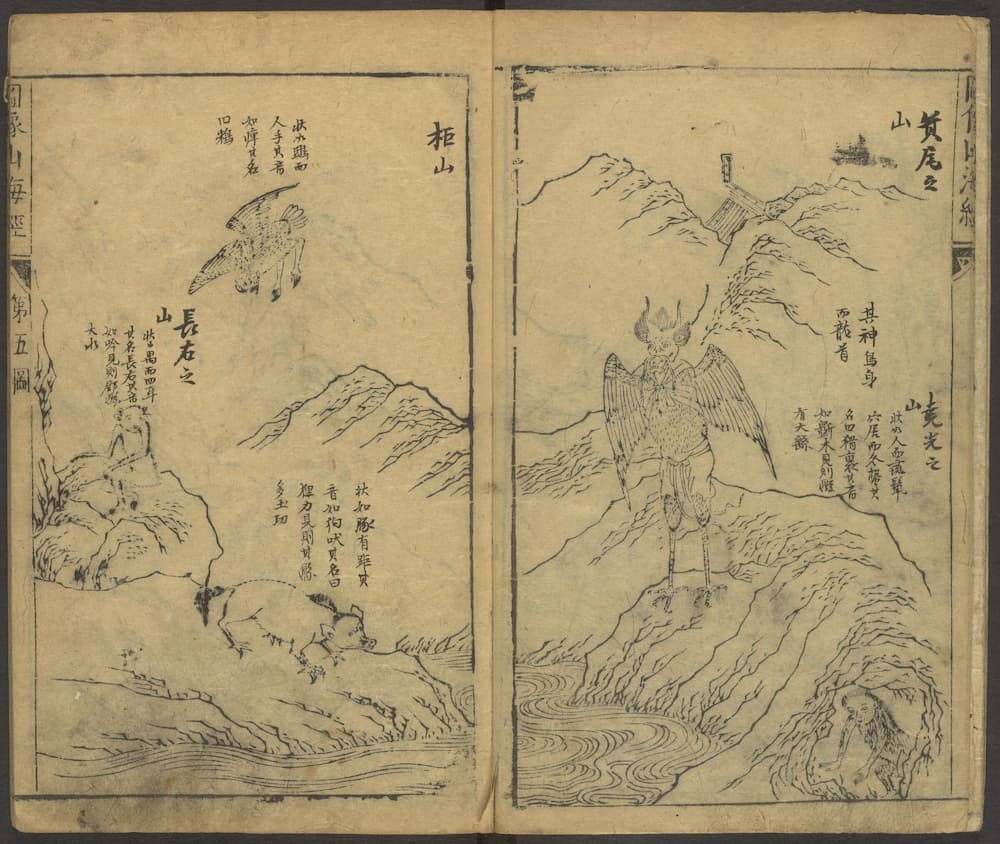 圖像山海經
箕尾之
山
其神鳥身
而龍首
堯光之
山
狀如人而彘鬣
穴居而冬蟄其
名曰猾褢其音
如斲木見則縣
有大繇
柜山
狀如鴟而
人手其音
如痺其名
曰鴸
狀如豚有距其
音如狗吠其名曰
狸力見則其縣
多土功
長右之
山
狀如禺而四耳
其名長右其音
如吟見則郡縣
大水
圖像山海經
第五圖